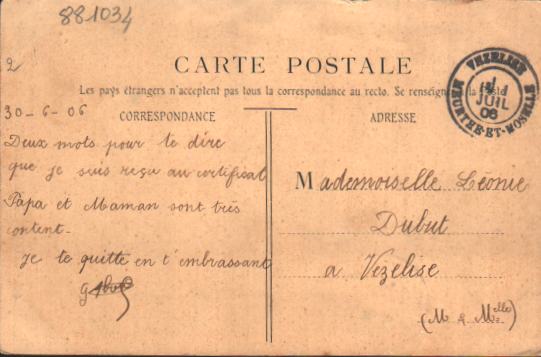 881034
2
CARTE POSTALE
Les pays étrangers n'acceptent pas tous la correspondance au recto. Se renseigner à la poste
VEZELISE
JUIL
06
MEURTHE-ET-MOSELLE
30-6-06
CORRESPONDANCE
Deux mots pour te dire
que je suis reçu au certificat
Papa et Maman sont très
content-
Je te quitte en t'embrassant
ADRESSE
Mademoiselle Léonie
Dubut
a Vezelise
(M & Melle)